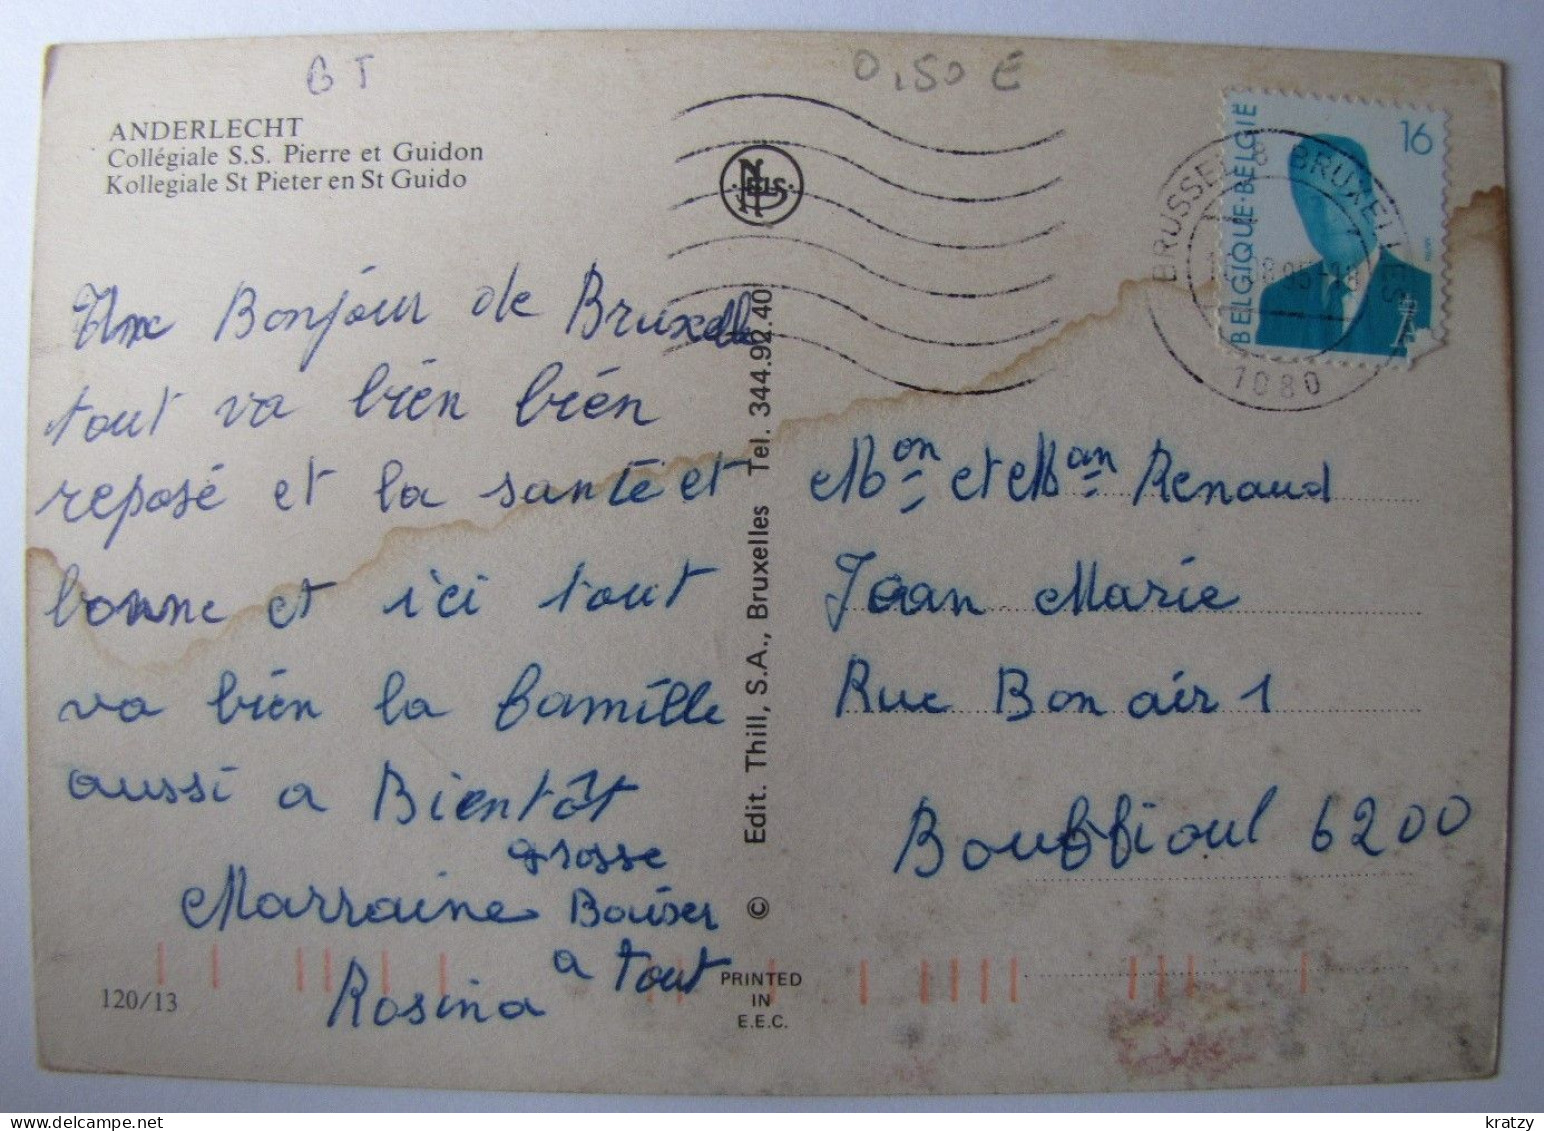 BT
0,50 €
ANDERLECHT
Collégiale S.S. Pierre et Guidon
Kollegiale St Pieter en St Guido
NELS
Une Bonjour de Bruxelle
tout va bién bién
reposé et la santé et
bonne et ici tout
va bién la famille
aussi a Bientôt
grosse
Marraine Bouiser
a tout
Rosina
120/13
Edit. Thill, S.A., Bruxelles Tel. 344.92.40
©
PRINTED
IN
E.E.C.
BELGIQUE·BELGIË
16
BRUSSEL 8 BRUXELLES
1080
Mon et Man Renaud
Jean Marie
Rue Bon air 1
Bouffioul 6200
kratzy